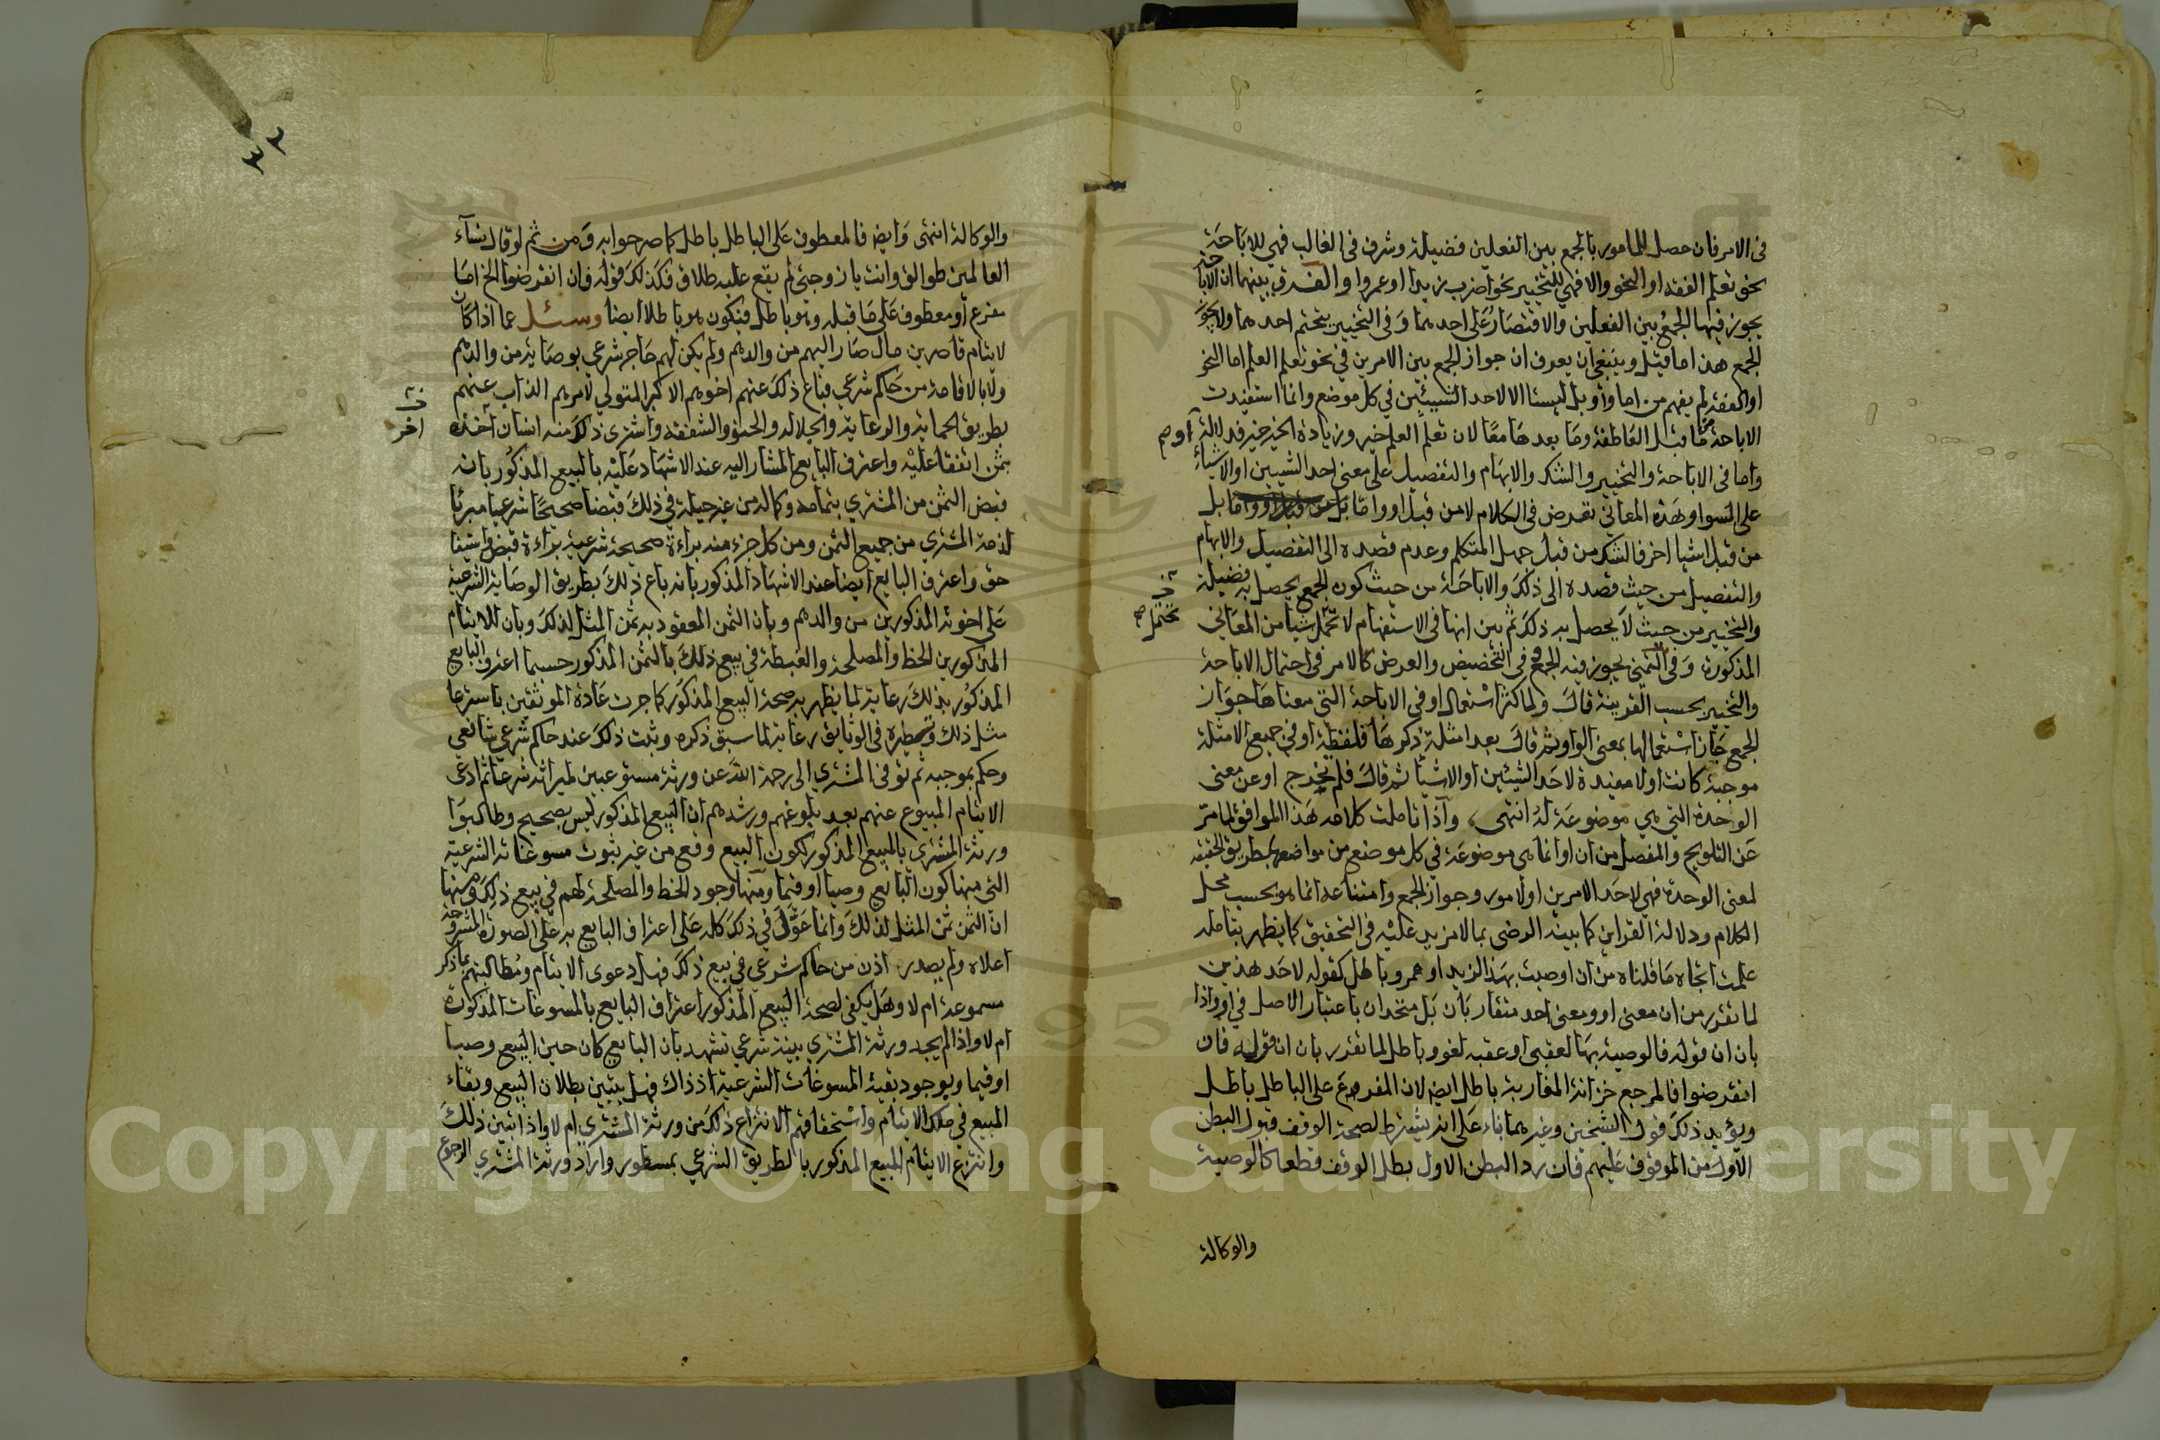 فى الامر فان حصل للمامور بالجمع بين الفعلين فضيلة وشرف فى الغالب فهي للاباحة
نحو تعلم الفقه او النحو والا فهي للتخيير نحو اضرب زيدا او عمروا والفرق بينهما ان الاباحة
يجوز فيها الجمع بين الفعلين والاقتصار على احدهما وفى التخيير يتحتم احدهما ولا يجوز
الجمع هذا ما قيل وينبغي ان يعرف ان جواز الجمع بين الامرين في نحو تعلم العلم اما النحو
او الفقه لم يفهم من اما و او بل ليستا الا لاحد الشيئين في كل موضع وانما استفيدت
الاباحة مما قبل العاطفة وما بعدها معًا لان تعلم العلم خير وزيادة الخير خير فدلالة او
واما فى الاباحة والتخيير والشك والابهام والتفصيل على معنى احد الشيين او الاشياء
على السوا وهذه المعاني تعرض فى الكلام لا من قبل او واما بل
من قبل اشيا اخر فالشك من قبل جهل المتكلم وعدم قصده الى التفصيل والابهام
والتفصيل من حيث قصده الى ذلك والاباحة من حيث كون الجمع يحصل به فضيلة
والتخيير من حيث لا يحصل به ذلك ثم بين انها فى الاستفهام لا تحمل شيا من المعاني
تحتمل
المذكورة وفى التمني يجوز فيه الجمع وفى التخضيض والعرض كالامر فى احتمال الاباحة
والتخيير بحسب القرينة قال ولما كثر استعمال او فى الاباحة التى معناها جواز
الجمع جاز استعمالها بمعنى الواو ثم قال بعد امثلة ذكرها فلفظة او فى جميع الامثلة
موجبة كانت اولا مفيدة لاحد الشيئين او الاشيا ثم قال فلم تخرج او عن معنى
الوحدة التي هي موضوعة له انتهى واذا تاملت كلامه هذا الموافق لما مر
عن التلويح والمفصل من ان او انما هى موضوعة في كل موضع من مواضعها بطريق الحقيقة
لمعنى الوحدة فهي لاحد الامرين او الامور وجواز الجمع وامتناعه انما هو بحسب محل
الكلام ودلالة القراين كما بينه الرضى بما لا مزيد عليه فى التحقيق كما يظهر بتامله
علمت اتجاه ما قلناه من ان اوصيت بهذا لزيد او عمرو باطل كقوله لاحد هذين
لما تقرر من ان معنى او ومعنى احد متقاربان بل متحدان باعتبار الاصل في او واذا
بان ان قوله فالوصية بها لعقبى او عقبه لغو وباطل لما تقرر بان ان قوله فان
انقرضوا فالمرجع خزانة المغاربة باطل ايض لان المفرع على الباطل باطل
ويؤيد ذلك قول الشيخين وغيرهما بناء على انه يشترط لصحة الوقف قبول البطن
الاول من الموقوف عليهم فان رد البطن الاول بطل الوقف قطعا كالوصية
والوكالة
والوكالة انتهى وايض فالمعطوف على الباطل باطل كما صرحوا به ومن ثم لو قال نساء
العالمين طوالق وانت يا زوجتى لم يقع عليه طلاق فكذلك قوله فان انقرضوا الخ اما
مفرع او معطوف على ما قبله وهو باطل فيكون هو باطلا ايضا وسئل عما اذا كان
لايتام قاصرين مال صار اليهم من والدهم ولم يكن لهم حاجر شرعي بوصاية من والدهم
ولا بالاقامة من حاكم شرعي فباع ذلك عنهم اخوهم الاكبر المتولي لامرهم الذاب عنهم
بطريق الحماية والرعاية والجلالة والحنو والشفقة واشترى ذلك منه انسان آخذه
اخر
بثمن اتفقا عليه واعترف البايع المشار اليه عند الاشهاد عليه بالبيع المذكور بانه
قبض الثمن من المشتري بتمامه وكماله من غير حيلة في ذلك قبضا صحيحًا شرعيا مبرئا
لذمة المشتري من جميع الثمن ومن كل جزء منه براءة صحيحة شرعية براءة قبض واستيفا
حق واعترف البايع ايضا عند الاشهاد المذكور بانه باع ذلك بطريق الوصاية الشرعية
على اخوته المذكورين من والدهم وبان الثمن المعقود به ثمن المثل لذلك وبان للايتام
المذكورين الحظ والمصلحة والغبطة في بيع ذلك بالثمن المذكور حسبما اعترف البايع
المذكور بذلك رعاية لما يظهر به صحة البيع المذكور كما جرت عادة الموثقين باسترعا
مثل ذلك وتسطيره فى الوثايق رعاية لما سبق ذكره وثبت ذلك عند حاكم شرعي شافعي
وحكم بموجبه ثم توفى المشتري الى رحمة الله عن ورثة مستوعبين لميراثه شرعا ثم ادعى
الايتام المبيوع عنهم بعد بلوغهم ورشدهم ان البيع المذكور ليس بصحيح وطالبوا
ورثة المشترى بالمبيع المذكور لكون البيع وقع من غير ثبوت مسوغاته الشرعية
التى منها كون البايع وصيا او قيما ومنها وجود الحظ والمصلحة لهم في بيع ذلك ومنها
ان الثمن ثمن المثل لذلك وانما عول في ذلك كله على اعتراف البايع به على الصورة المشروحة
اعلاه ولم يصدر اذن من حاكم شرعي في بيع ذلك فهل دعوى الايتام ومطالبتهم بما ذكر
مسموعة ام لا وهل يكفى لصحة البيع المذكور اعتراف البايع بالمسوغات المذكورة
ام لا واذا لم يجد ورثة المشتري بينة شرعي تشهد بان البايع كان حين البيع وصيا
او قيما وبوجود بقية المسوغات الشرعية اذ ذاك فهل يتبين بطلان البيع وبقاء
المبيع في ملك الايتام واستحقاقهم الانتزاع ذلك من ورثة المشتري ام لا واذا تبين ذلك
وانتزع الايتام المبيع المذكور بالطريق الشرعي بمسطور واراد ورثة المشتري الرجوع
٣٣
Copyright © King Saud University